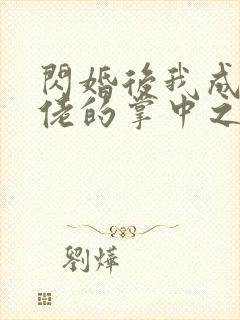 閃婚後我成
佬的掌中之
劉燁